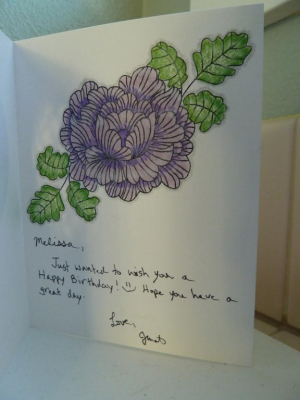 Melissa,
Just wanted to wish you a
Happy Birthday! Hope you have a
great day.
Love,